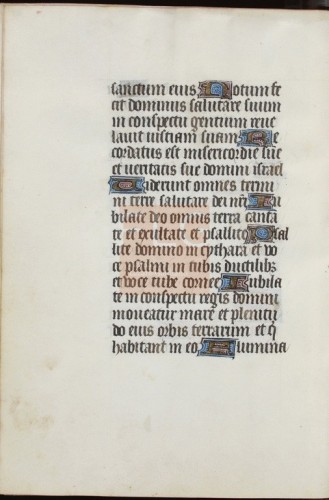 sanctum eius Notum fe
cit dominus salutare suum
in conspectu gentium reue
lauit iusticiam suam Re
cordatus est misericordie sue
et ueritatis sue domui israel
Uiderunt omnes termi
ni terre salutare dei nri Iu
bilate deo omnis terra canta
te et exultate et psallite Psal
lite domino in cythara et uo
ce psalmi in tubis ductilibz
et uoce tube cornee Iubila
te in conspectu regis domini
moueatur mare et plenitu
do eius orbis terrarum et q
habitant in eo Flumina